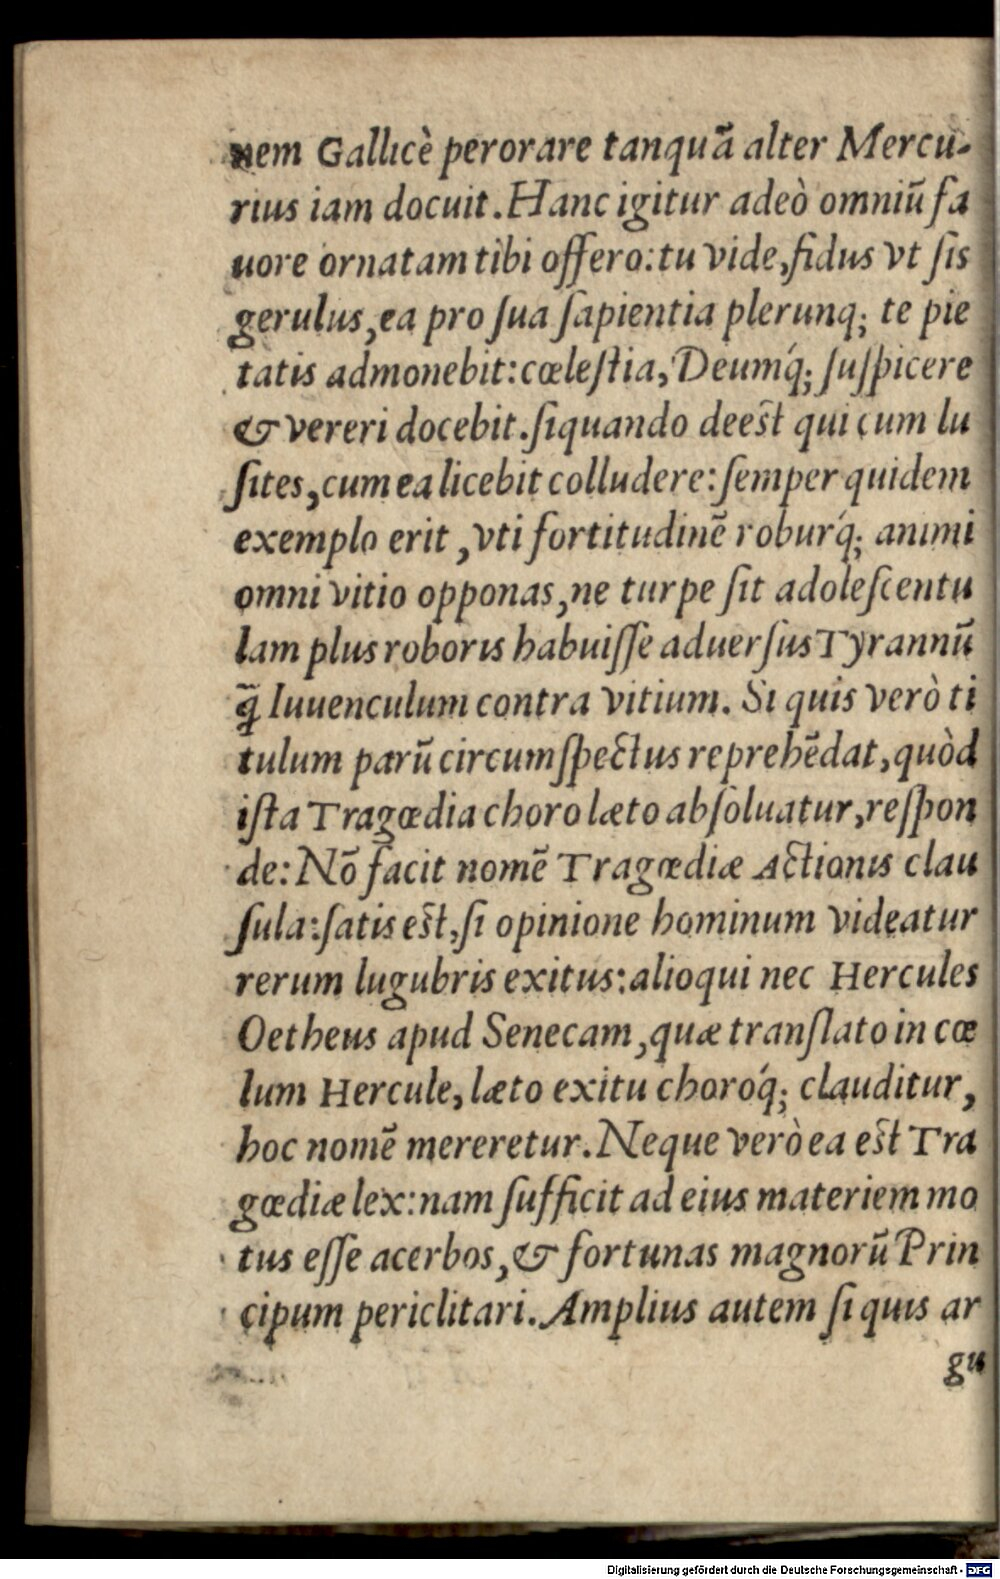 nem Gallicè perorare tanquā alter Mercu-
rius iam docuit. Hanc igitur adeò omniū fa
uore ornatam tibi offero: tu vide, fidus vt ſis
gerulus, ea pro ſua ſapientia plerunq; te pie
tatis admonebit: cœleſtia, Deumq́; ſuſpicere
& vereri docebit. ſiquando deeſt qui cum lu
ſites, cum ea licebit colludere: ſemper quidem
exemplo erit, vti fortitudinē roburq́; animi
omni vitio opponas, ne turpe ſit adoleſcentu
lam plus roboris habuiſſe aduerſus Tyrannū
q̄ Iuuenculum contra vitium. Si quis verò ti
tulum parū circumſpectus reprehēdat, quòd
iſta Tragœdia choro læto abſoluatur, reſpon
de: Nō facit nomē Tragœdiæ Actionis clau
ſula: ſatis eſt, ſi opinione hominum videatur
rerum lugubris exitus: alioqui nec Hercules
Oetheus apud Senecam, quæ tranſlato in cœ
lum Hercule, læto exitu choroq́; clauditur,
hoc nomē mereretur. Neque verò ea eſt Tra
gœdiæ lex: nam ſufficit ad eius materiem mo
tus eſſe acerbos, & fortunas magnorū Prin
cipum periclitari. Amplius autem ſi quis ar
gu
Digitalisierung gefördert durch die Deutsche Forschungsgemeinschaft - DFG